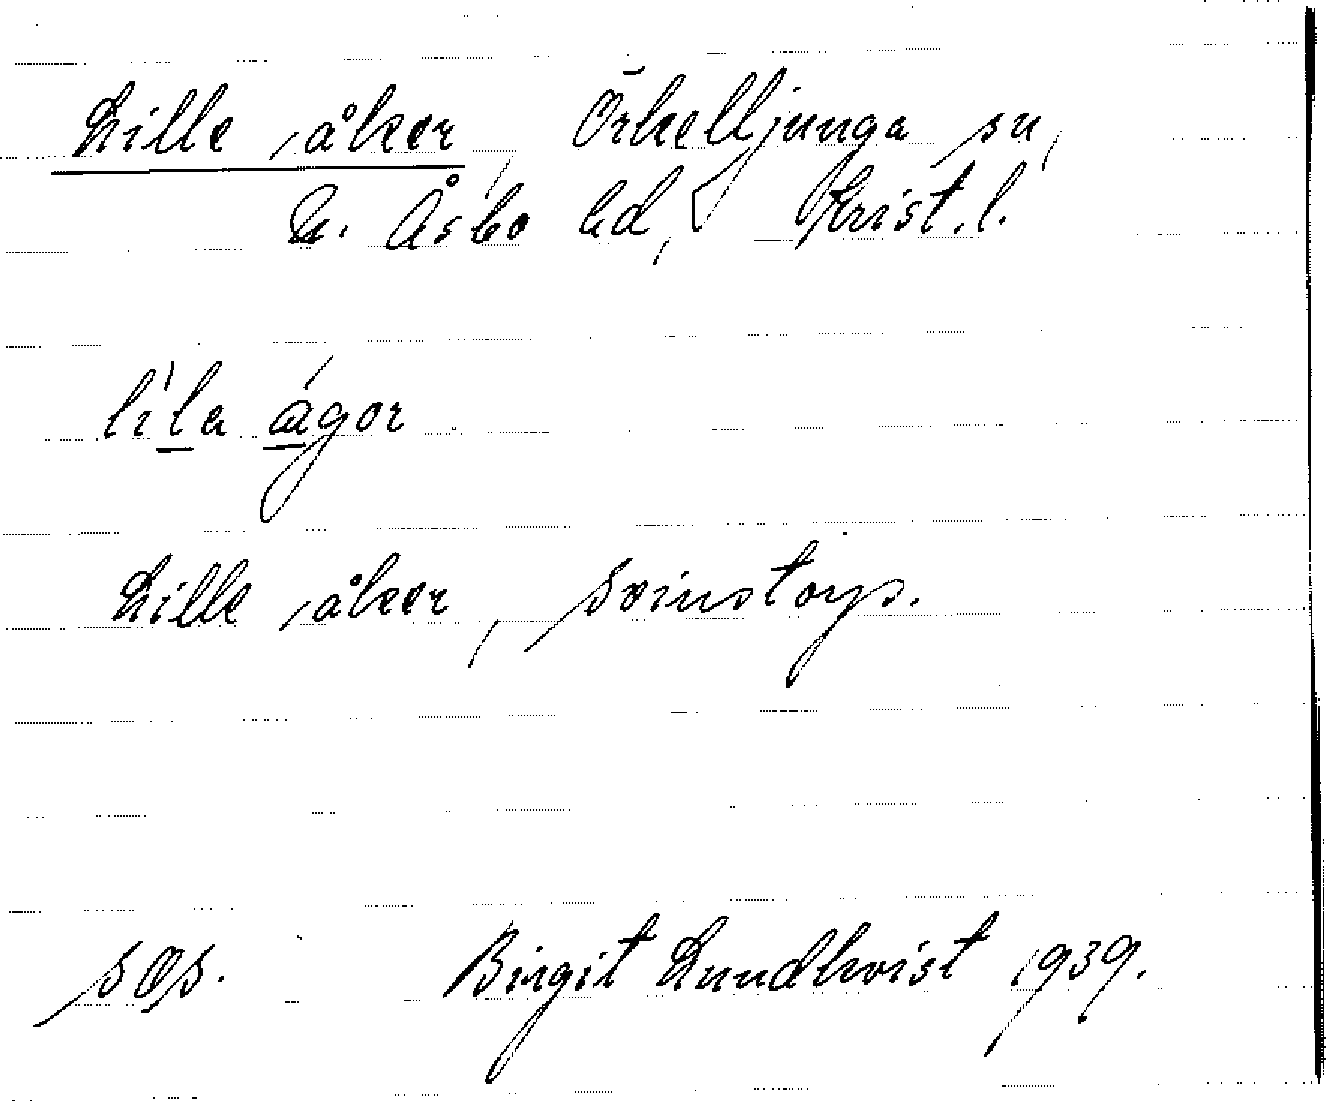 Lille åker, Örkelljunga sn,
N. Åsbo hd, Krist. l.
lila ågor
Lille åker, Svinstorp.
sÆs. Birgit Lundkvist 1939.